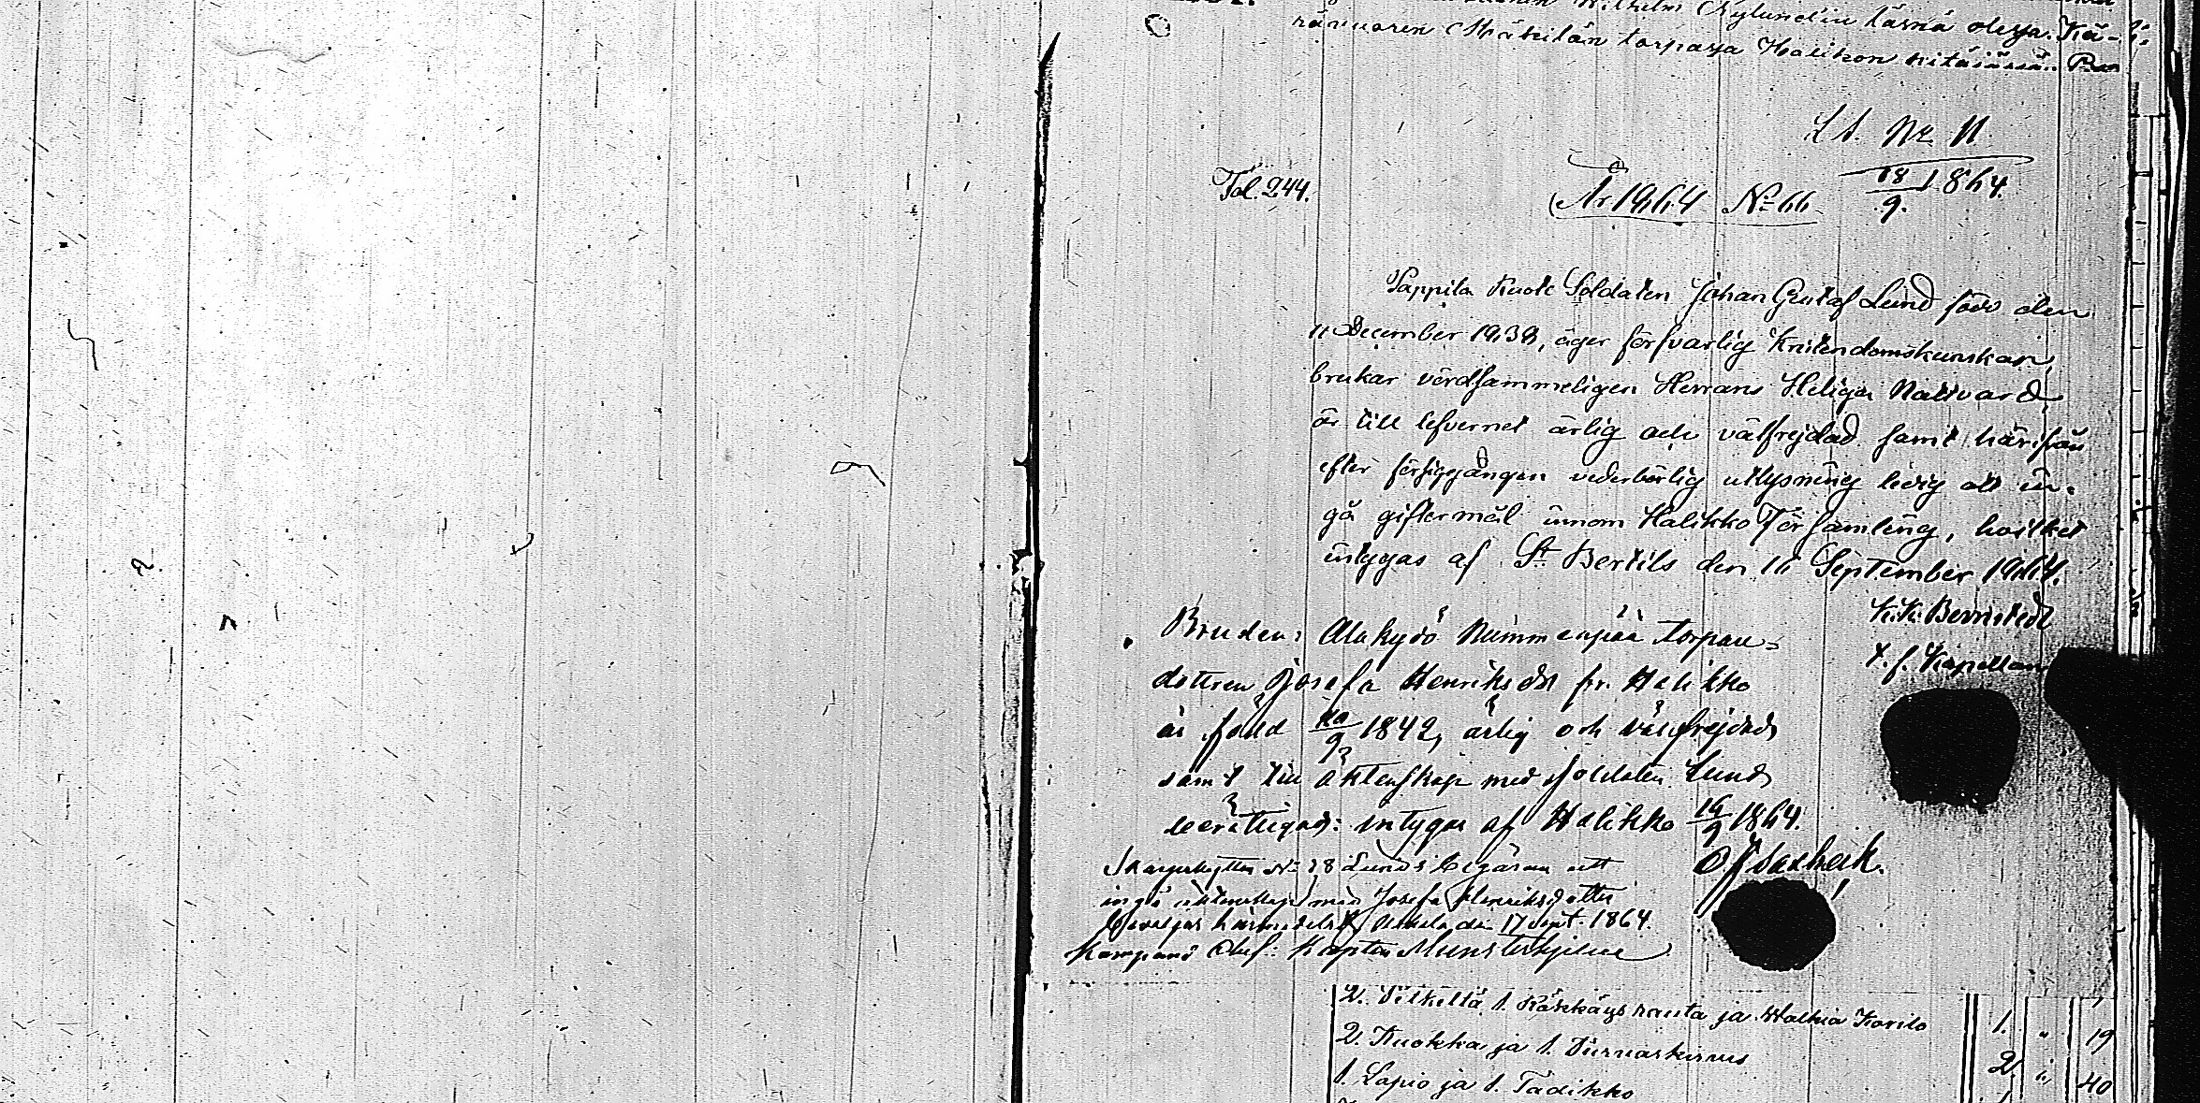 Wilhelm Nylundin läsnä olessa. Kä-
torpassa Halikon pitäjässä.
Lt. Nr 11
Fol. 244.
År 1864 No 66
18/9. 1864.
Pappila Ruote Soldaten Johan Gustaf Lund född den
11 December 1838, äger försvarlig Kristendomskunskap,
brukar vördsammeligen Herrans Heliga Nattvard,
är till lefvernet ärlig och välfrejdad samt härifrån
efter föregången vederbörlig utlysning ledig att in-
gå giftermål innom Halikko Församling, hvilket
intygas af St Bertils den 11 September 1864.
K.K. Bernstedt
t.f. Kapellan
Bruden: Alakydö Nummenpää torpare-
dottren Josefa Henriksdr fr. Halikko
är född 20/9 1842, ärlig och välfrejdad
samt till äktenskap med Soldaten Lund
berättigad: intygar af Halikko 16/9 1864.
Skarpskytten No 28 Lunds begäran att
ingå äktenskap med Josefa Henriksdotter
beviljas härmedelst den 17 Sept. 1864.
Kompani Chef: Kapten Munsterhjelm
2. Vitkettä, 1. Räkkäys rauta ja Halkia Korito 1. " 19
2. Kuokka ja 1. 2 " 40
1. Lapio ja 1. Tadikko